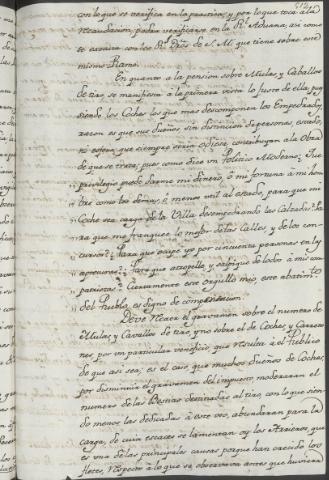 con lo que se verifica en la pension, y por lo que toca a la
Recaudacion, podia verificarse en la Rl. Aduana, asi como
se executa con los Rs. Dros. de S. M. que tiene sobre este
mismo Ramo.
En quanto a la pension sobre Mulas, y Caballos
de tiro se manifiesta a la primera vista lo justo de ella; pues
siendo los Coches los que mas descomponen los Empedrados,
razon es que sus dueños sin distincion de personas, estado,
ni esfera, que siempre seria odiosa contribuyan a la Obra
de que se trata; pues como dice un Politico Moderno: Que
privilegio puede darme mi dinero, ó mi fortuna á mi hom
bre como los demas, ó menos util al estado, para que mi
Coche vea cargo de la Villa desempedrando las Calzadas? Pa
ra que me franquee lo mejor de las Calles, y de los con
cursos? Para que ocupe yo por cincuenta personas en las
apreturas? Para que atropelle, y salpique de lodo á mis com
patriotas? Ciertamente este orgullo mio, este abatim.to
del Pueblo, es digno de compensacion.
Deve recaer el gravamen sobre el numero de
Mulas, y Cavallos de tiro, y no sobre el de Coches, y Carrozas
nes, por un particular veneficio, que resulta á el Publico
de que asi sea; es el caso que muchos Dueños de Coches,
por disminuir el gravamen del impuesto moderaran el
numero de las Bestias destinadas al tiro, con lo que sien
do menos las dedicadas á este uso, abundaran para la
carga, de cuia escases se lamentan oy los Arrieros, que
es una de las principales causas porque han crecido los
fletes, respecto á lo que se observava antes que huviera